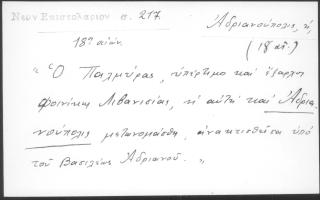 Νεον Επιστολαριον σ. 217.
Ἀδριανούπολις, ἡ,
18ος αἰών.
(18 αἰ.)
"Ὁ Παλμύρας, ὑπέρτιμος καὶ ἔξαρχος
Φοινίκης Λιβανισίας, ἡ αὐτὴ καὶ Ἀδρια-
νούπολις μετωνομάσθη, ἀνακτισθεῖσα ὑπὸ
τοῦ Βασιλέως Ἀδριανοῦ. "